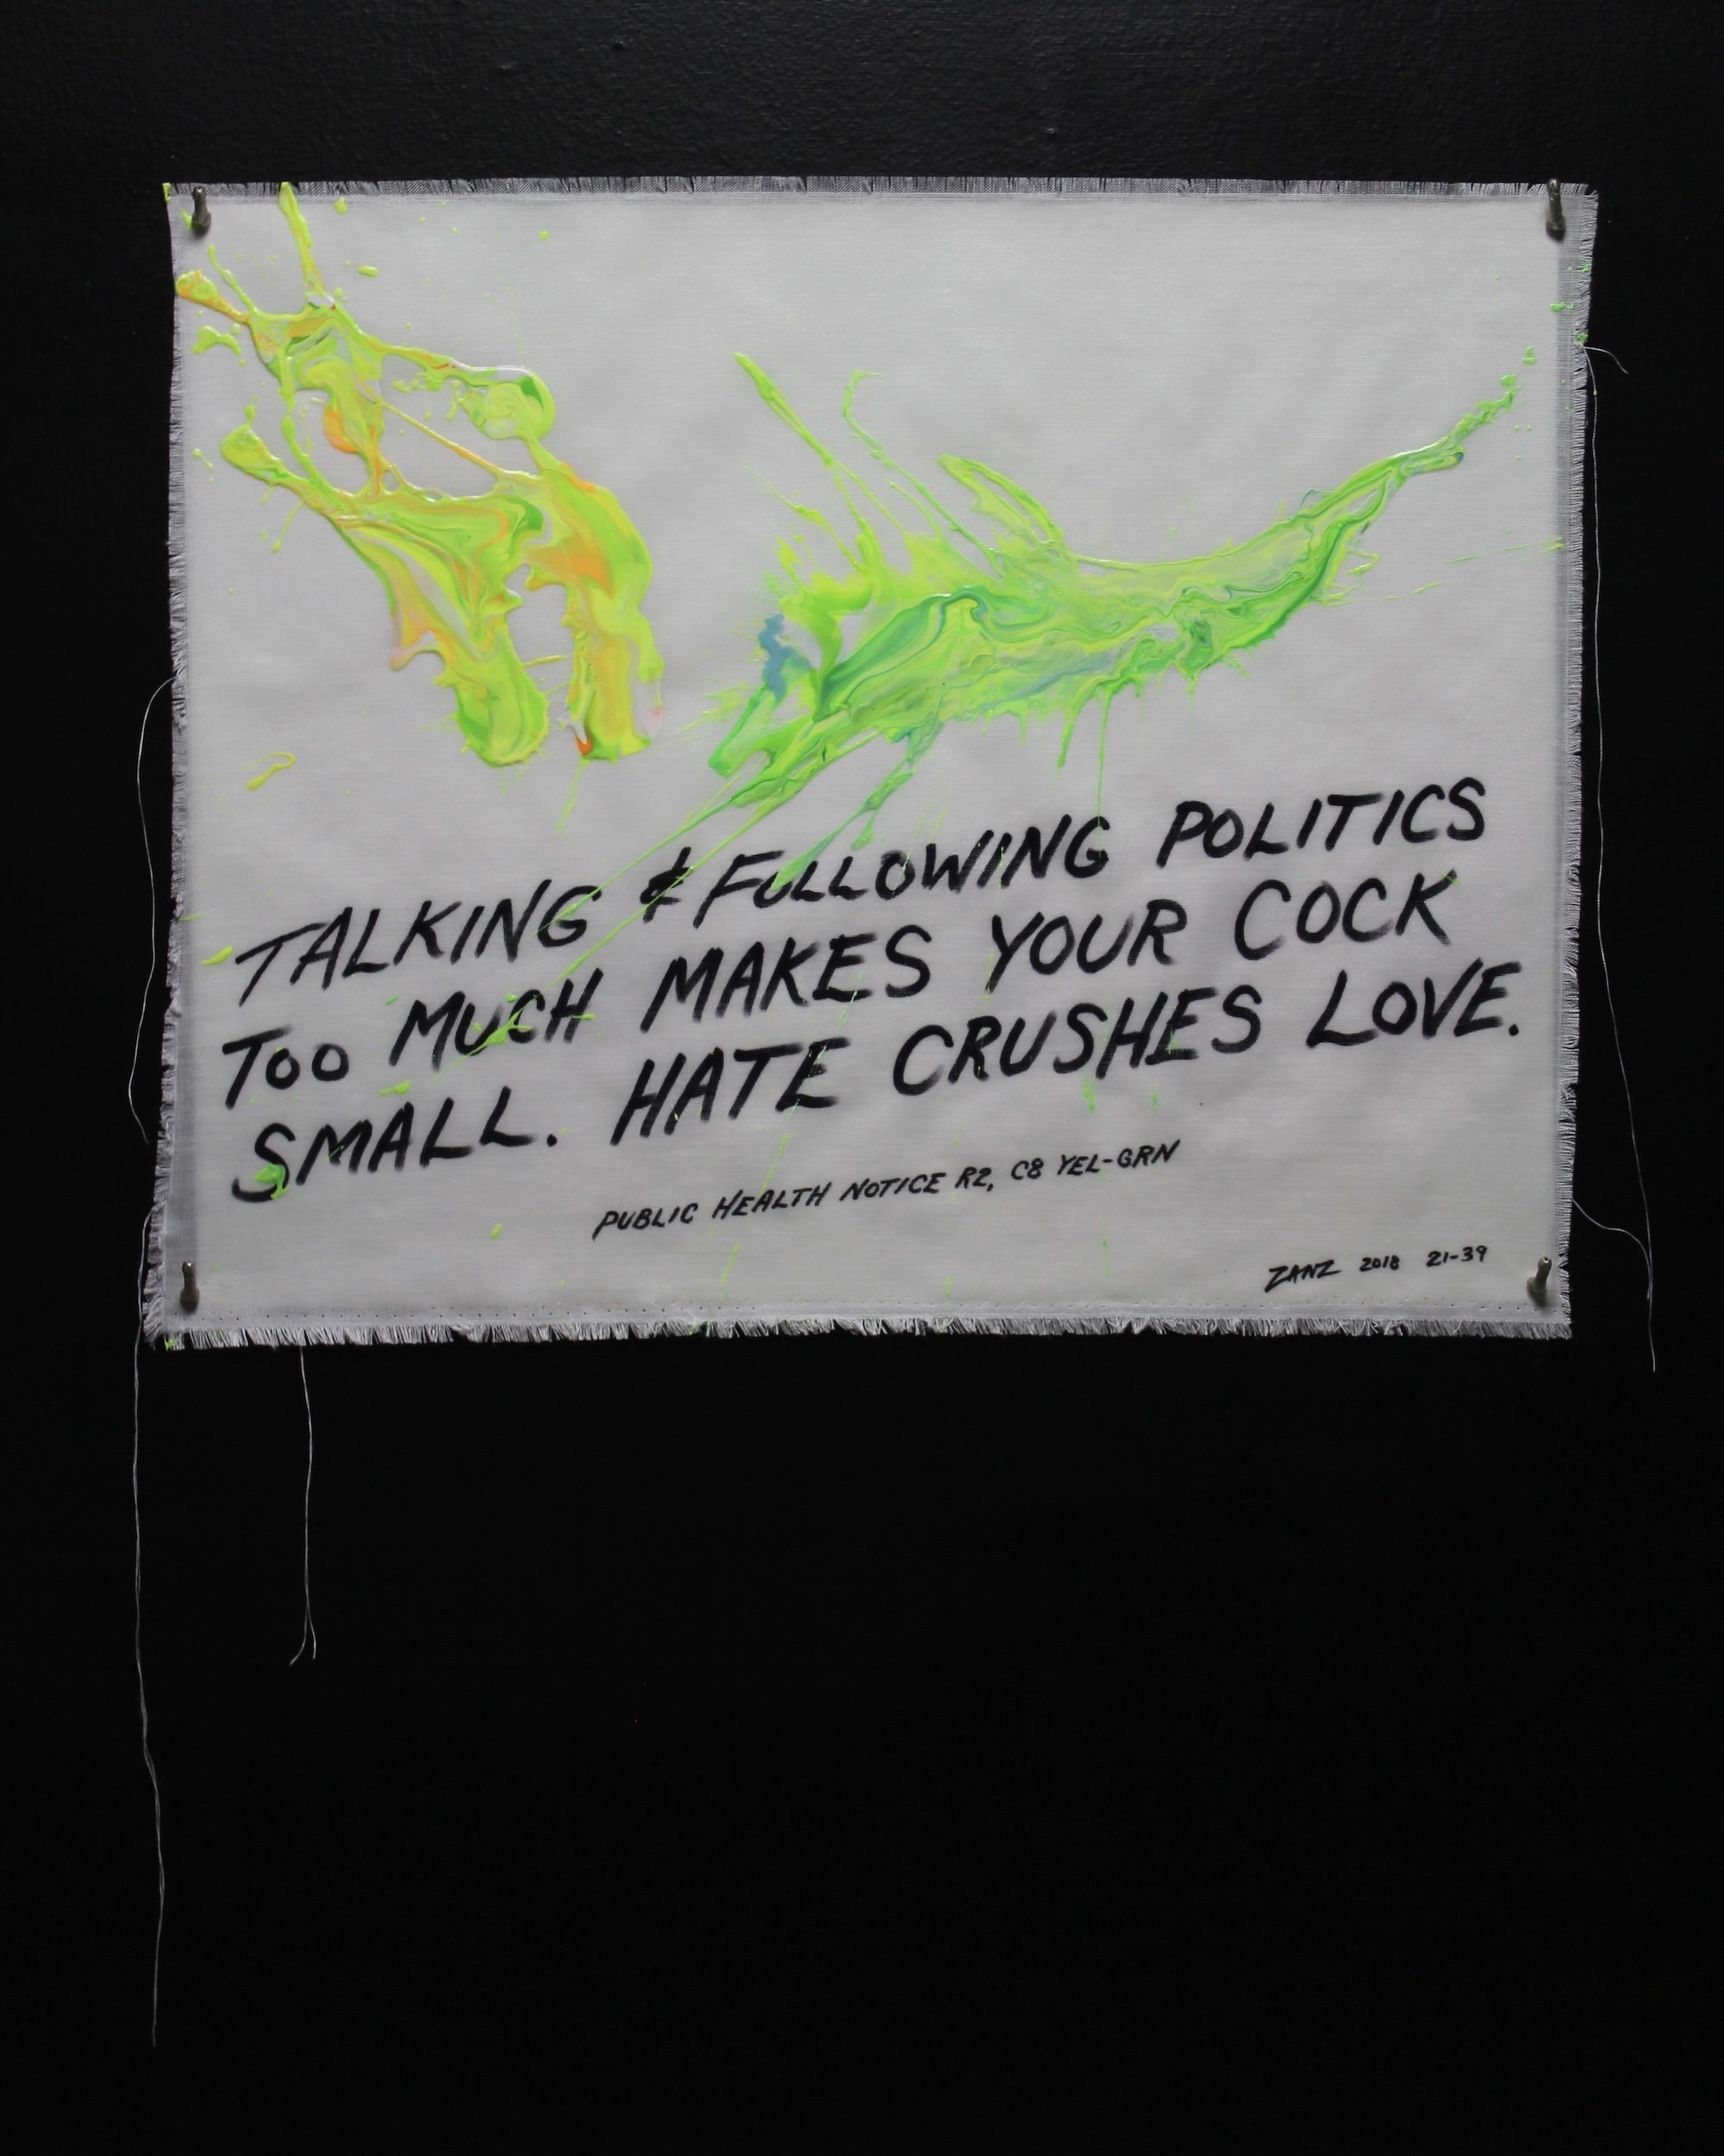 TALKING & FOLLOWING POLITICS
TOO MUCH MAKES YOUR COCK
SMALL. HATE CRUSHES LOVE.
PUBLIC HEALTH NOTICE R2, C8 YEL-GRN
ZANZ 2018 21-39